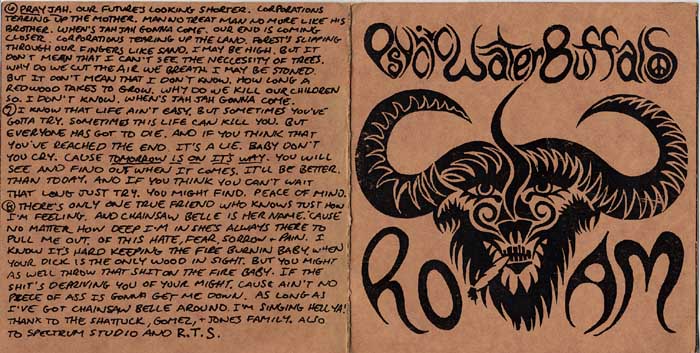 ⑥ PRAY JAH. OUR FUTURE'S LOOKING SHORTER. CORPORATIONS
TEARING UP THE MOTHER. MAN NO TREAT MAN NO MORE LIKE HIS
BROTHER. WHEN'S JAH JAH GONNA COME. OUR END IS COMING
CLOSER. CORPORATIONS TEARING UP THE LAND. FOREST'S SLIPPING
THROUGH OUR FINGERS LIKE SAND. I MAY BE HIGH. BUT IT
DON'T MEAN THAT I CAN'T SEE THE NECLESSITY OF TREES.
WHY DO WE CUT THE AIR WE BREATH. I MAY BE STONED.
BUT IT DON'T MEAN THAT I DON'T KNOW. HOW LONG A
REDWOOD TAKES TO GROW. WHY DO WE KILL OUR CHILDREN
SO. I DON'T KNOW. WHEN'S JAH JAH GONNA COME.
⑦ I KNOW THAT LIFE AIN'T EASY. BUT SOMETIMES YOU'VE
GOTTA TRY. SOMETIMES THIS LIFE CAN KILL YOU. BUT
EVERYONE HAS GOT TO DIE. AND IF YOU THINK THAT
YOU'VE REACHED THE END. IT'S A LIE. BABY DON'T
YOU CRY. CAUSE TOMORROW IS ON IT'S WAY. YOU WILL
SEE AND FIND OUT WHEN IT COMES. IT'LL BE BETTER.
THAN TODAY. AND IF YOU THINK YOU CAN'T WAIT
THAT LONG JUST TRY. YOU MIGHT FIND. PEACE OF MIND.
⑧ THERE'S ONLY ONE TRUE FRIEND WHO KNOWS JUST HOW
I'M FEELING. AND CHAINSAW BELLE IS HER NAME. 'CAUSE
NO MATTER HOW DEEP I'M IN SHE'S ALWAYS THERE TO
PULL ME OUT. OF THIS HATE, FEAR, SORROW + PAIN. I
KNOW IT'S HARD KEEPING THE FIRE BURNIN BABY. WHEN
YOUR DICK IS THE ONLY WOOD IN SIGHT. BUT YOU MIGHT
AS WELL THROW THAT SHIT ON THE FIRE BABY. IF THE
SHIT'S DEPRIVING YOU OF YOUR MIGHT. CAUSE AIN'T NO
PEECE OF ASS IS GONNA GET ME DOWN. AS LONG AS
I'VE GOT CHAINSAW BELLE AROUND. I'M SINGING HELL YA!
THANX TO THE SHATTUCK, GOMEZ, + JONES FAMILY. ALSO
TO SPECTRUM STUDIO AND R.T.S.
Psycho Water Buffalo
ROAM